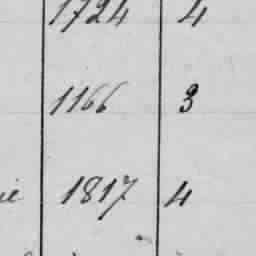 1724 4
1166 3
1817 4